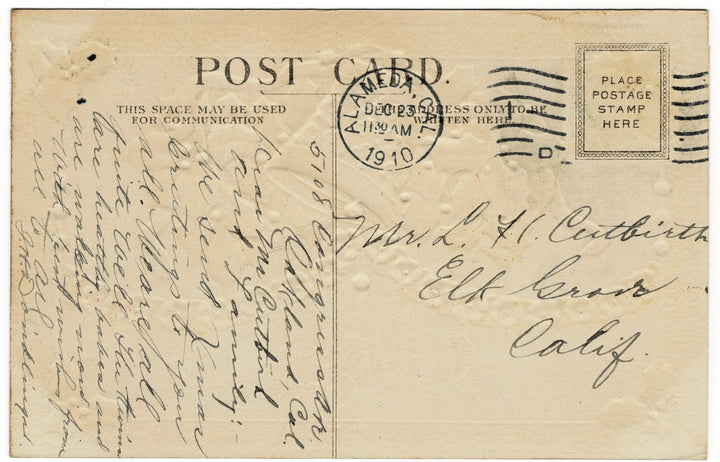 POST CARD.
THIS SPACE MAY BE USED
FOR COMMUNICATION
ADDRESS ONLY TO BE
WRITTEN HERE
ALAMEDA, CAL.
DEC 23
11 30 AM
1910
D
PLACE
POSTAGE
STAMP
HERE
Mr. L. H. Cutbirth
Elk Grove
Calif.
5108 Congress Av
Oakland, Cal
Dear Mr Cutbirth
and family:-
We send Xmas
Greetings to you
all. We are all
quite well. The twins
are healthy babies and
are walking now.
With best wishes from
all to all